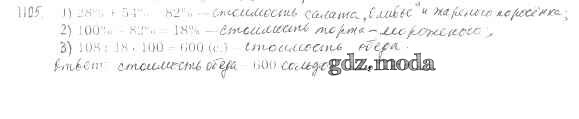 1105. 1) 28% + 54% = 82% – стоимость салата „Оливье“ и жареного поросёнка;
2) 100% – 82% = 18% – стоимость торта-мороженого,
3) 108 : 18 · 100 = 600 (с.) – стоимость обеда.
Ответ: стоимость обеда – 600 сольдо
gdz.moda